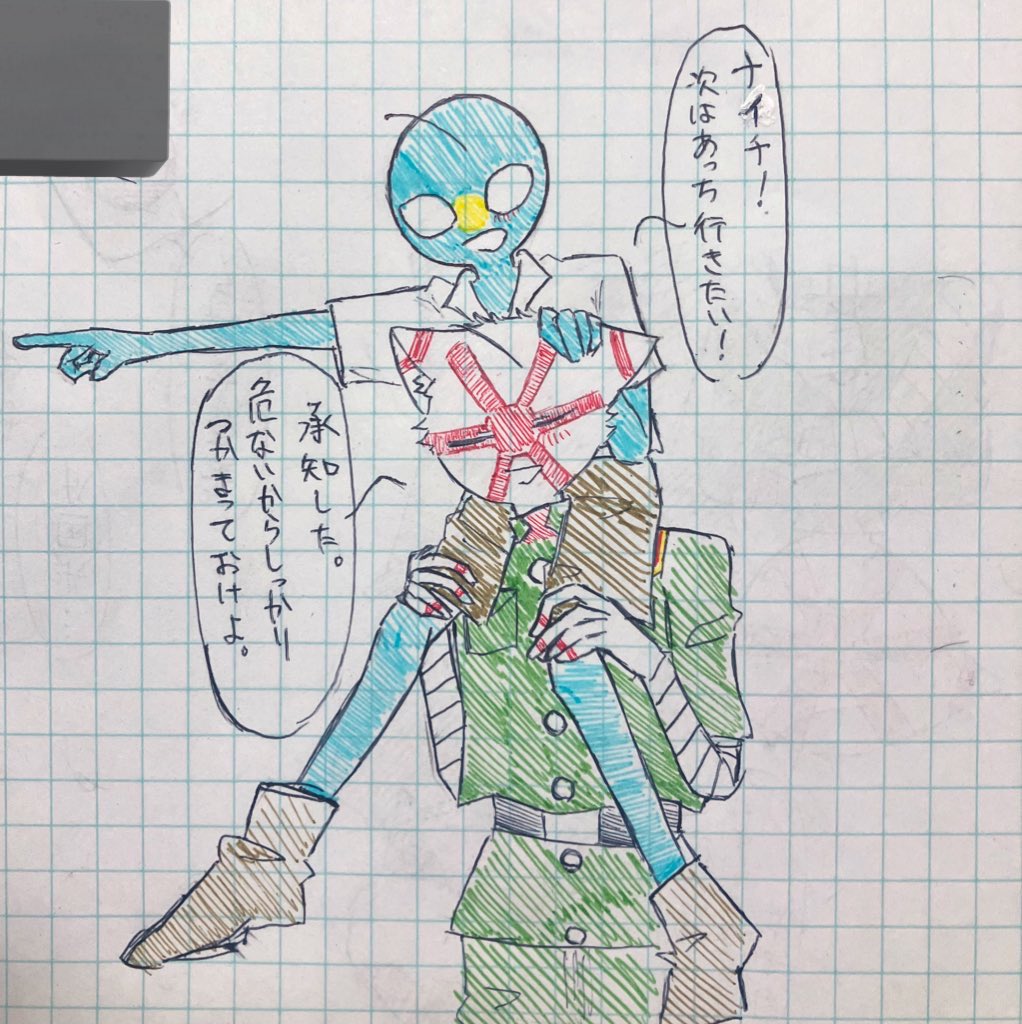 ナイチ！
次はあっち行きたい！
承知した。
危ないからしっかり
つかまっておけよ。